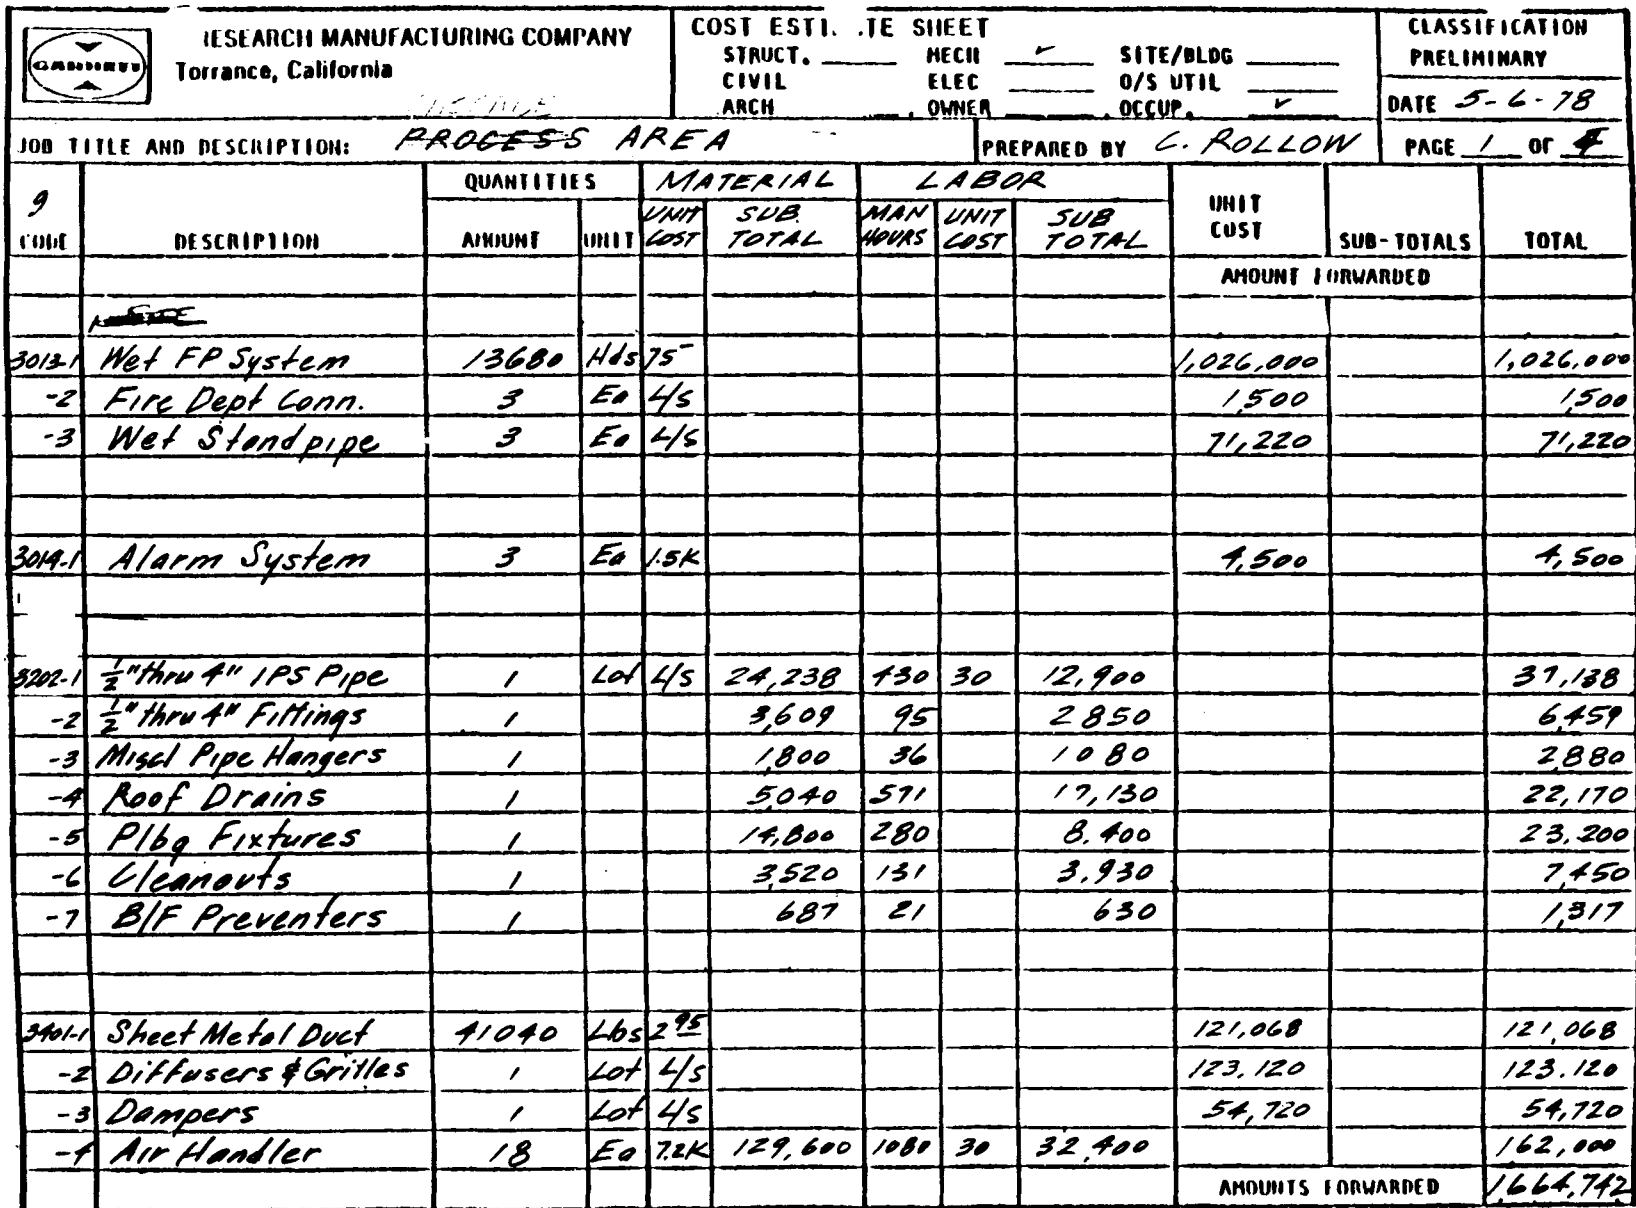 GARRETT
RESEARCH MANUFACTURING COMPANY
Torrance, California
COST ESTI. .TE SHEET
STRUCT. ____ MECH ✓ SITE/BLDG ____
CIVIL ELEC ____ O/S UTIL ____
ARCH ____ OWNER ____ OCCUP. ✓
CLASSIFICATION
PRELIMINARY
DATE 5-6-78
JOB TITLE AND DESCRIPTION: PROCESS AREA
PREPARED BY C. ROLLOW
PAGE 1 OF 4
9 CODE DESCRIPTION QUANTITIES AMOUNT UNIT MATERIAL UNIT COST SUB TOTAL LABOR MAN HOURS UNIT COST SUB TOTAL UNIT COST SUB-TOTALS TOTAL
AMOUNT FORWARDED
3013-1 Wet FP System 13680 Hds 75- 1,026,000 1,026,000
-2 Fire Dept Conn. 3 Ea L/S 1,500 1,500
-3 Wet Standpipe 3 Ea L/S 71,220 71,220
3014-1 Alarm System 3 Ea 1.5K 4,500 4,500
3202-1 ½" thru 4" IPS Pipe 1 Lot L/S 24,238 430 30 12,900 37,138
-2 ½" thru 4" Fittings 1 3,609 95 2850 6,459
-3 Miscl Pipe Hangers 1 1,800 36 1080 2,880
-4 Roof Drains 1 5,040 571 17,130 22,170
-5 Plbg Fixtures 1 14,800 280 8,400 23,200
-6 Cleanouts 1 3,520 131 3,930 7,450
-7 B/F Preventers 1 687 21 630 1,317
3401-1 Sheet Metal Duct 41040 Lbs 2 95 121,068 121,068
-2 Diffusers & Grilles 1 Lot L/S 123,120 123,120
-3 Dampers 1 Lot L/S 54,720 54,720
-4 Air Handler 18 Ea 7.2K 129,600 1080 30 32,400 162,000
AMOUNTS FORWARDED 1,664,742